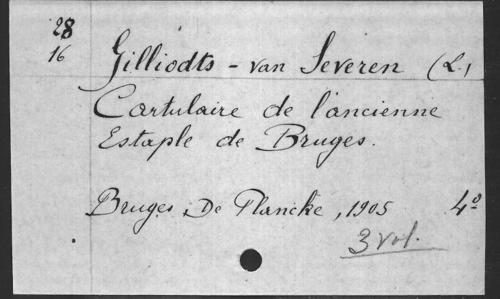 28
16
Gilliodts - van Severen (L.)
Cartulaire de l'ancienne
Estaple de Bruges.
Bruges, De Plancke, 1905 4º
3 vol.